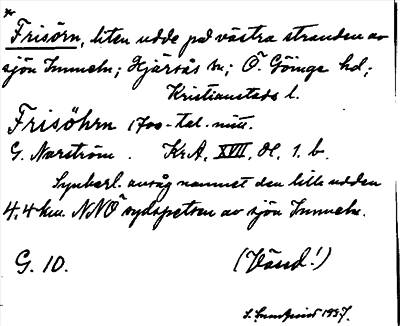 Frisörn, liten udde på västra stranden av
sjön Immeln; Hjärsås sn; Ö. Göinge hd;
Kristianstads l.
Frisöhrn 1700-tal. mitt.
G. Norström. KrA, XVII, Öl, 1. b.
Synbarl. avsåg namnet den lilla udden
4,4 km. NNO sydspetsen av sjön Immeln.
G. 10. (Vänd!)
1937.